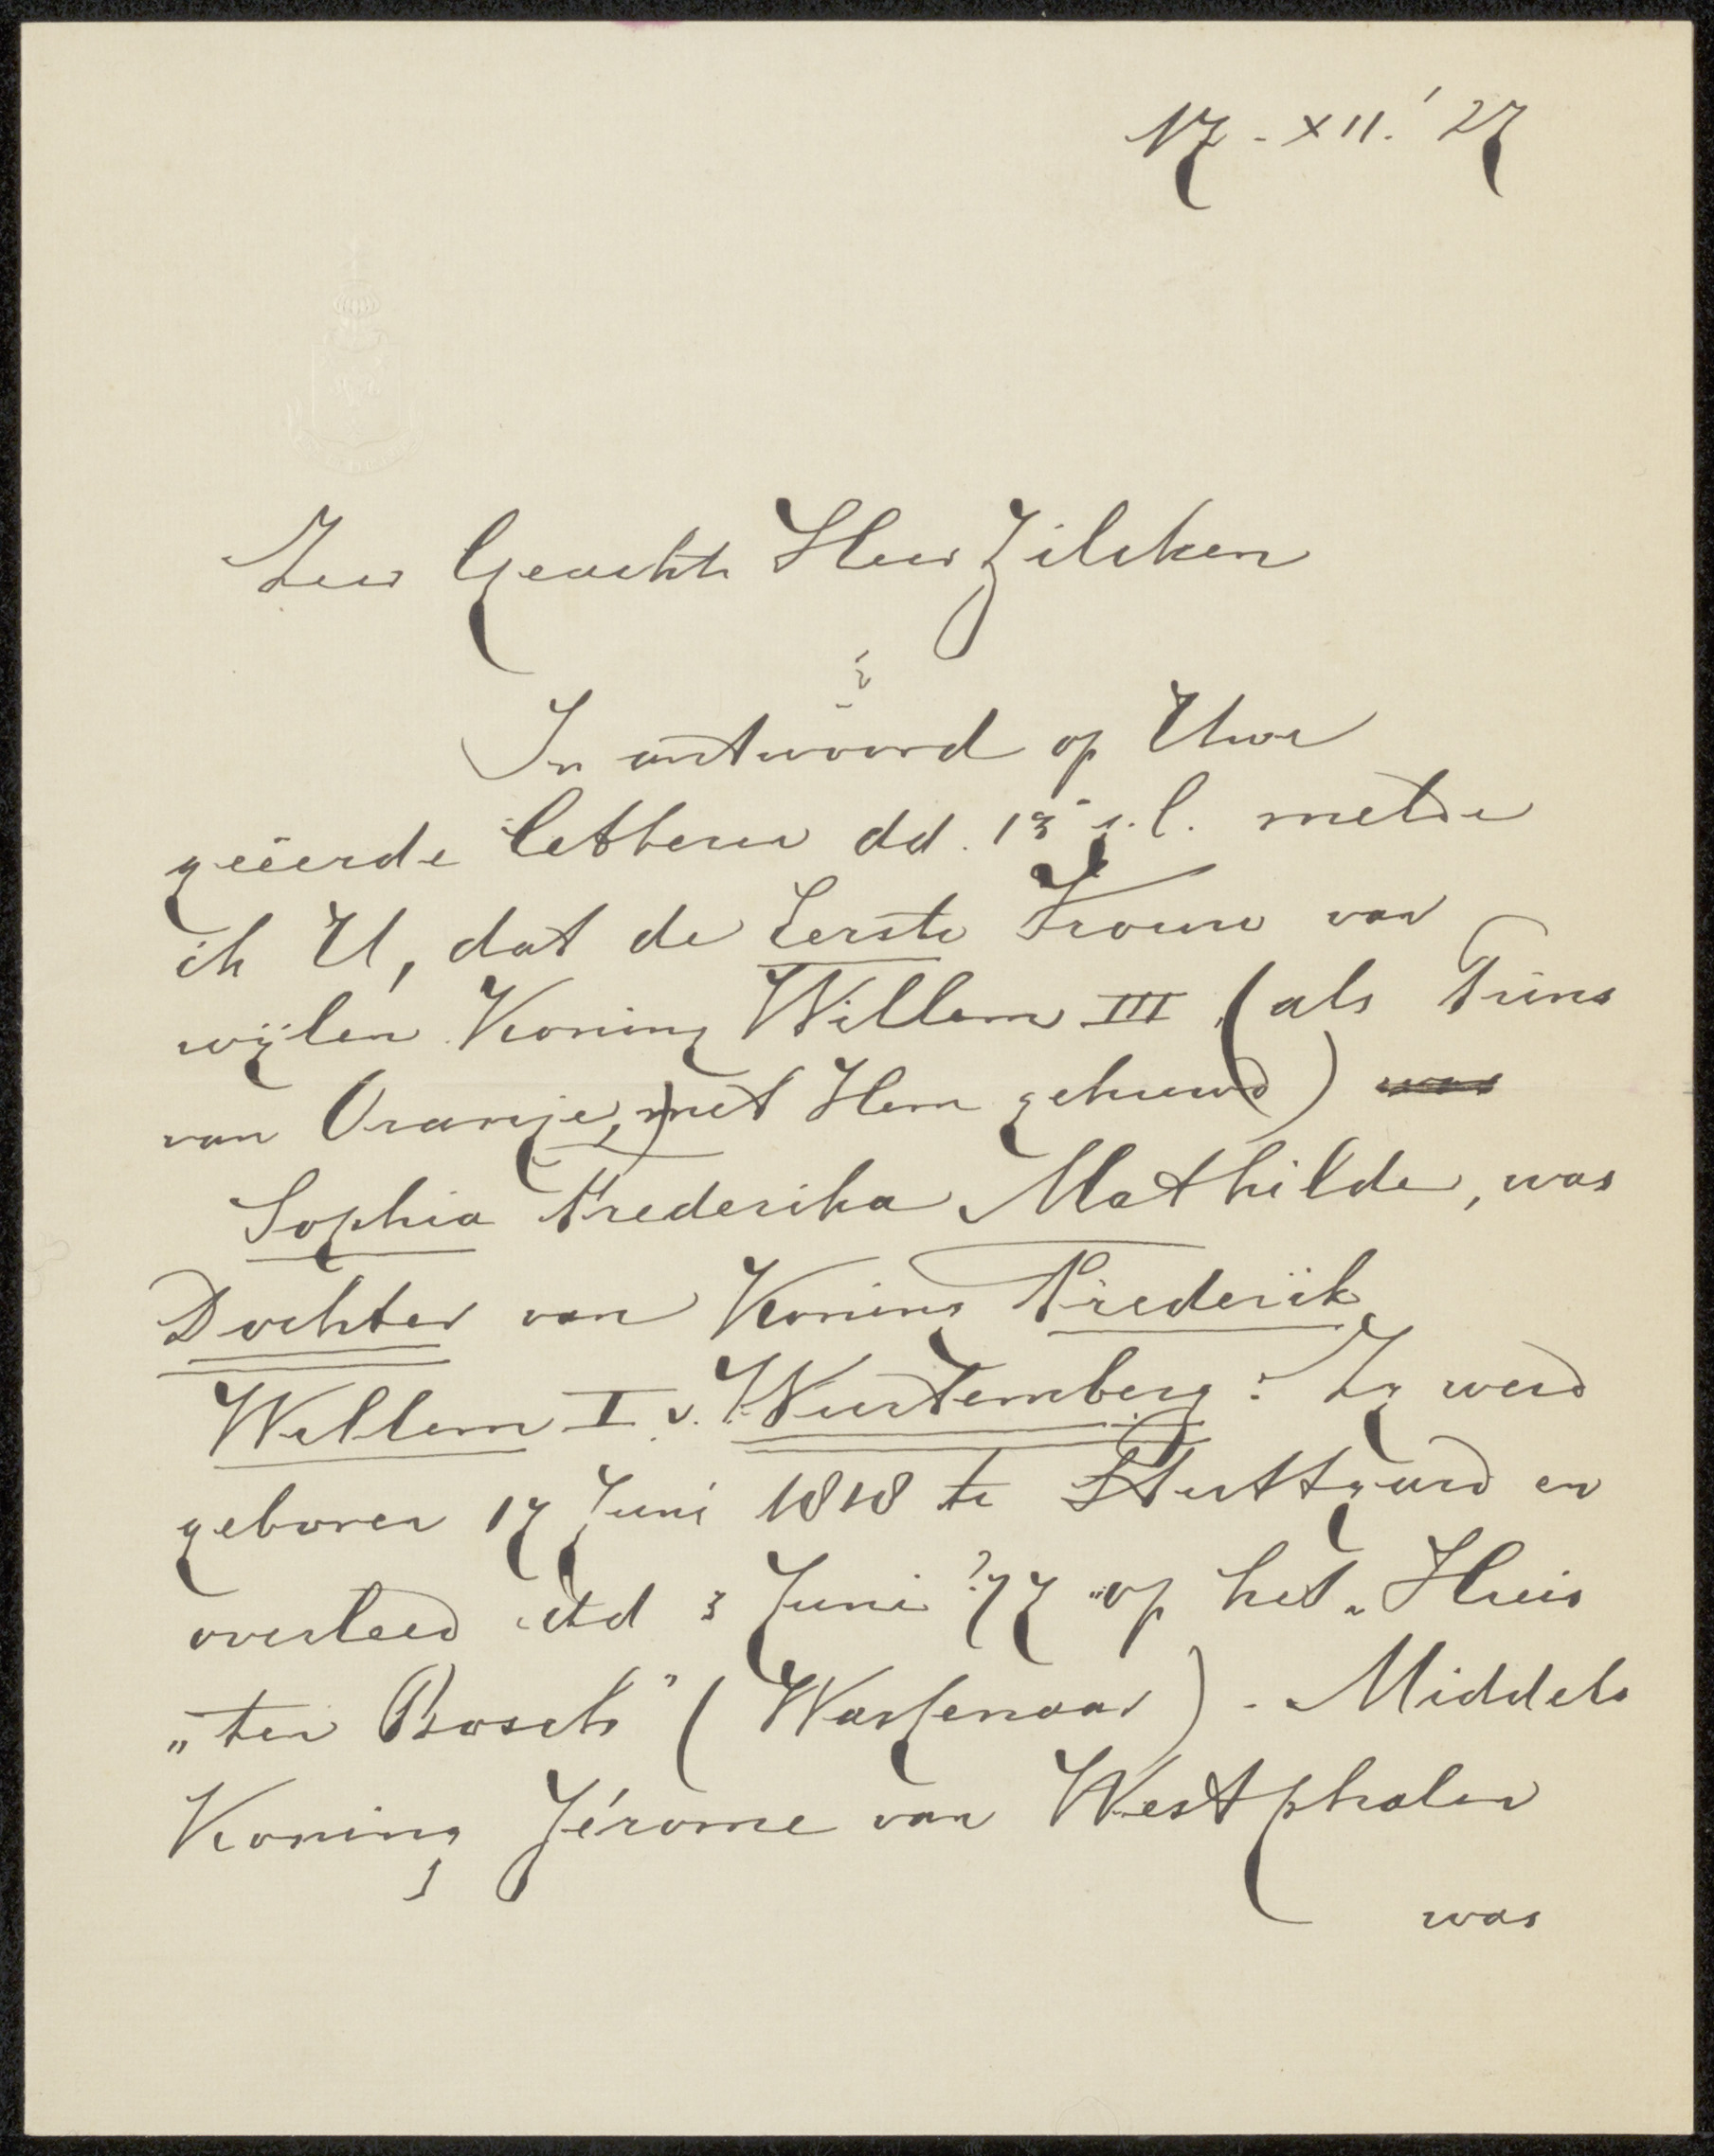 17-XII.'27
Zeer Geachte Heer Zilcken
In antwoord op Uwe
geëerde letteren dd. 13 s.l. melde
ik U, dat de Eerste Vrouw van
wijlen Koning Willem III (als Prins
van Oranje, met Hem gehuwd) was
Sophia Frederika Mathilde, was
Dochter van Koning Frederik
Willem I v. Wurtemberg: Zij werd
geboren 17 Juni 1818 te Stuttgard en
overleed dd 3 Juni '77 op het „Huis
„ten Bosch" (Wassenaar). - Middels
Koning Jérome van Westphalen
was